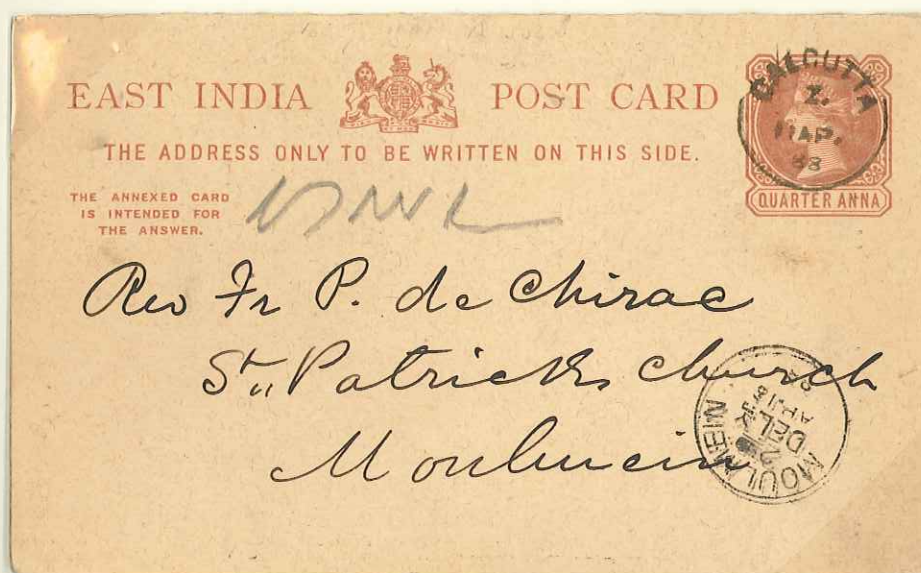 EAST INDIA POST CARD
THE ADDRESS ONLY TO BE WRITTEN ON THIS SIDE.
THE ANNEXED CARD
IS INTENDED FOR
THE ANSWER.
CALCUTTA
Z.
11 AP.
88
QUARTER ANNA
Rev Fr P. de Chirac
St,, Patricks church
Moulmein
MOULMEIN
DEL
AP 18